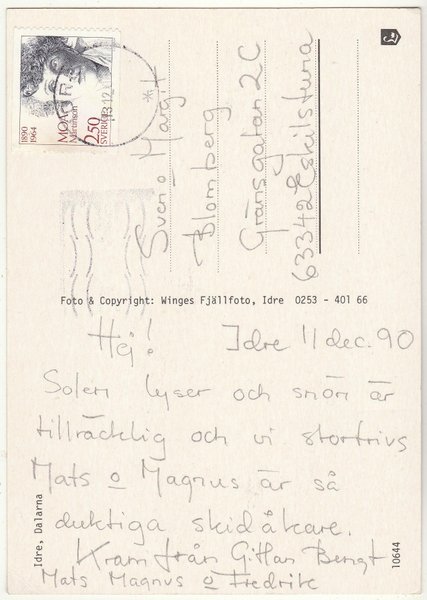 1890
1964
MOA
Martinson
2.50
SVERIGE
13.12
Sven o Margit
Blomberg
Gränsgatan 2C
63342 Eskilstuna
Foto & Copyright: Winges Fjällfoto, Idre 0253 - 401 66
Hej! Idre 11 dec. 90
Solen lyser och snön är
tillräcklig och vi stortrivs
Mats o Magnus är så
duktiga skidåkare.
Kram från Gittan Bengt
Mats Magnus o Fredrik
Idre, Dalarna
10644